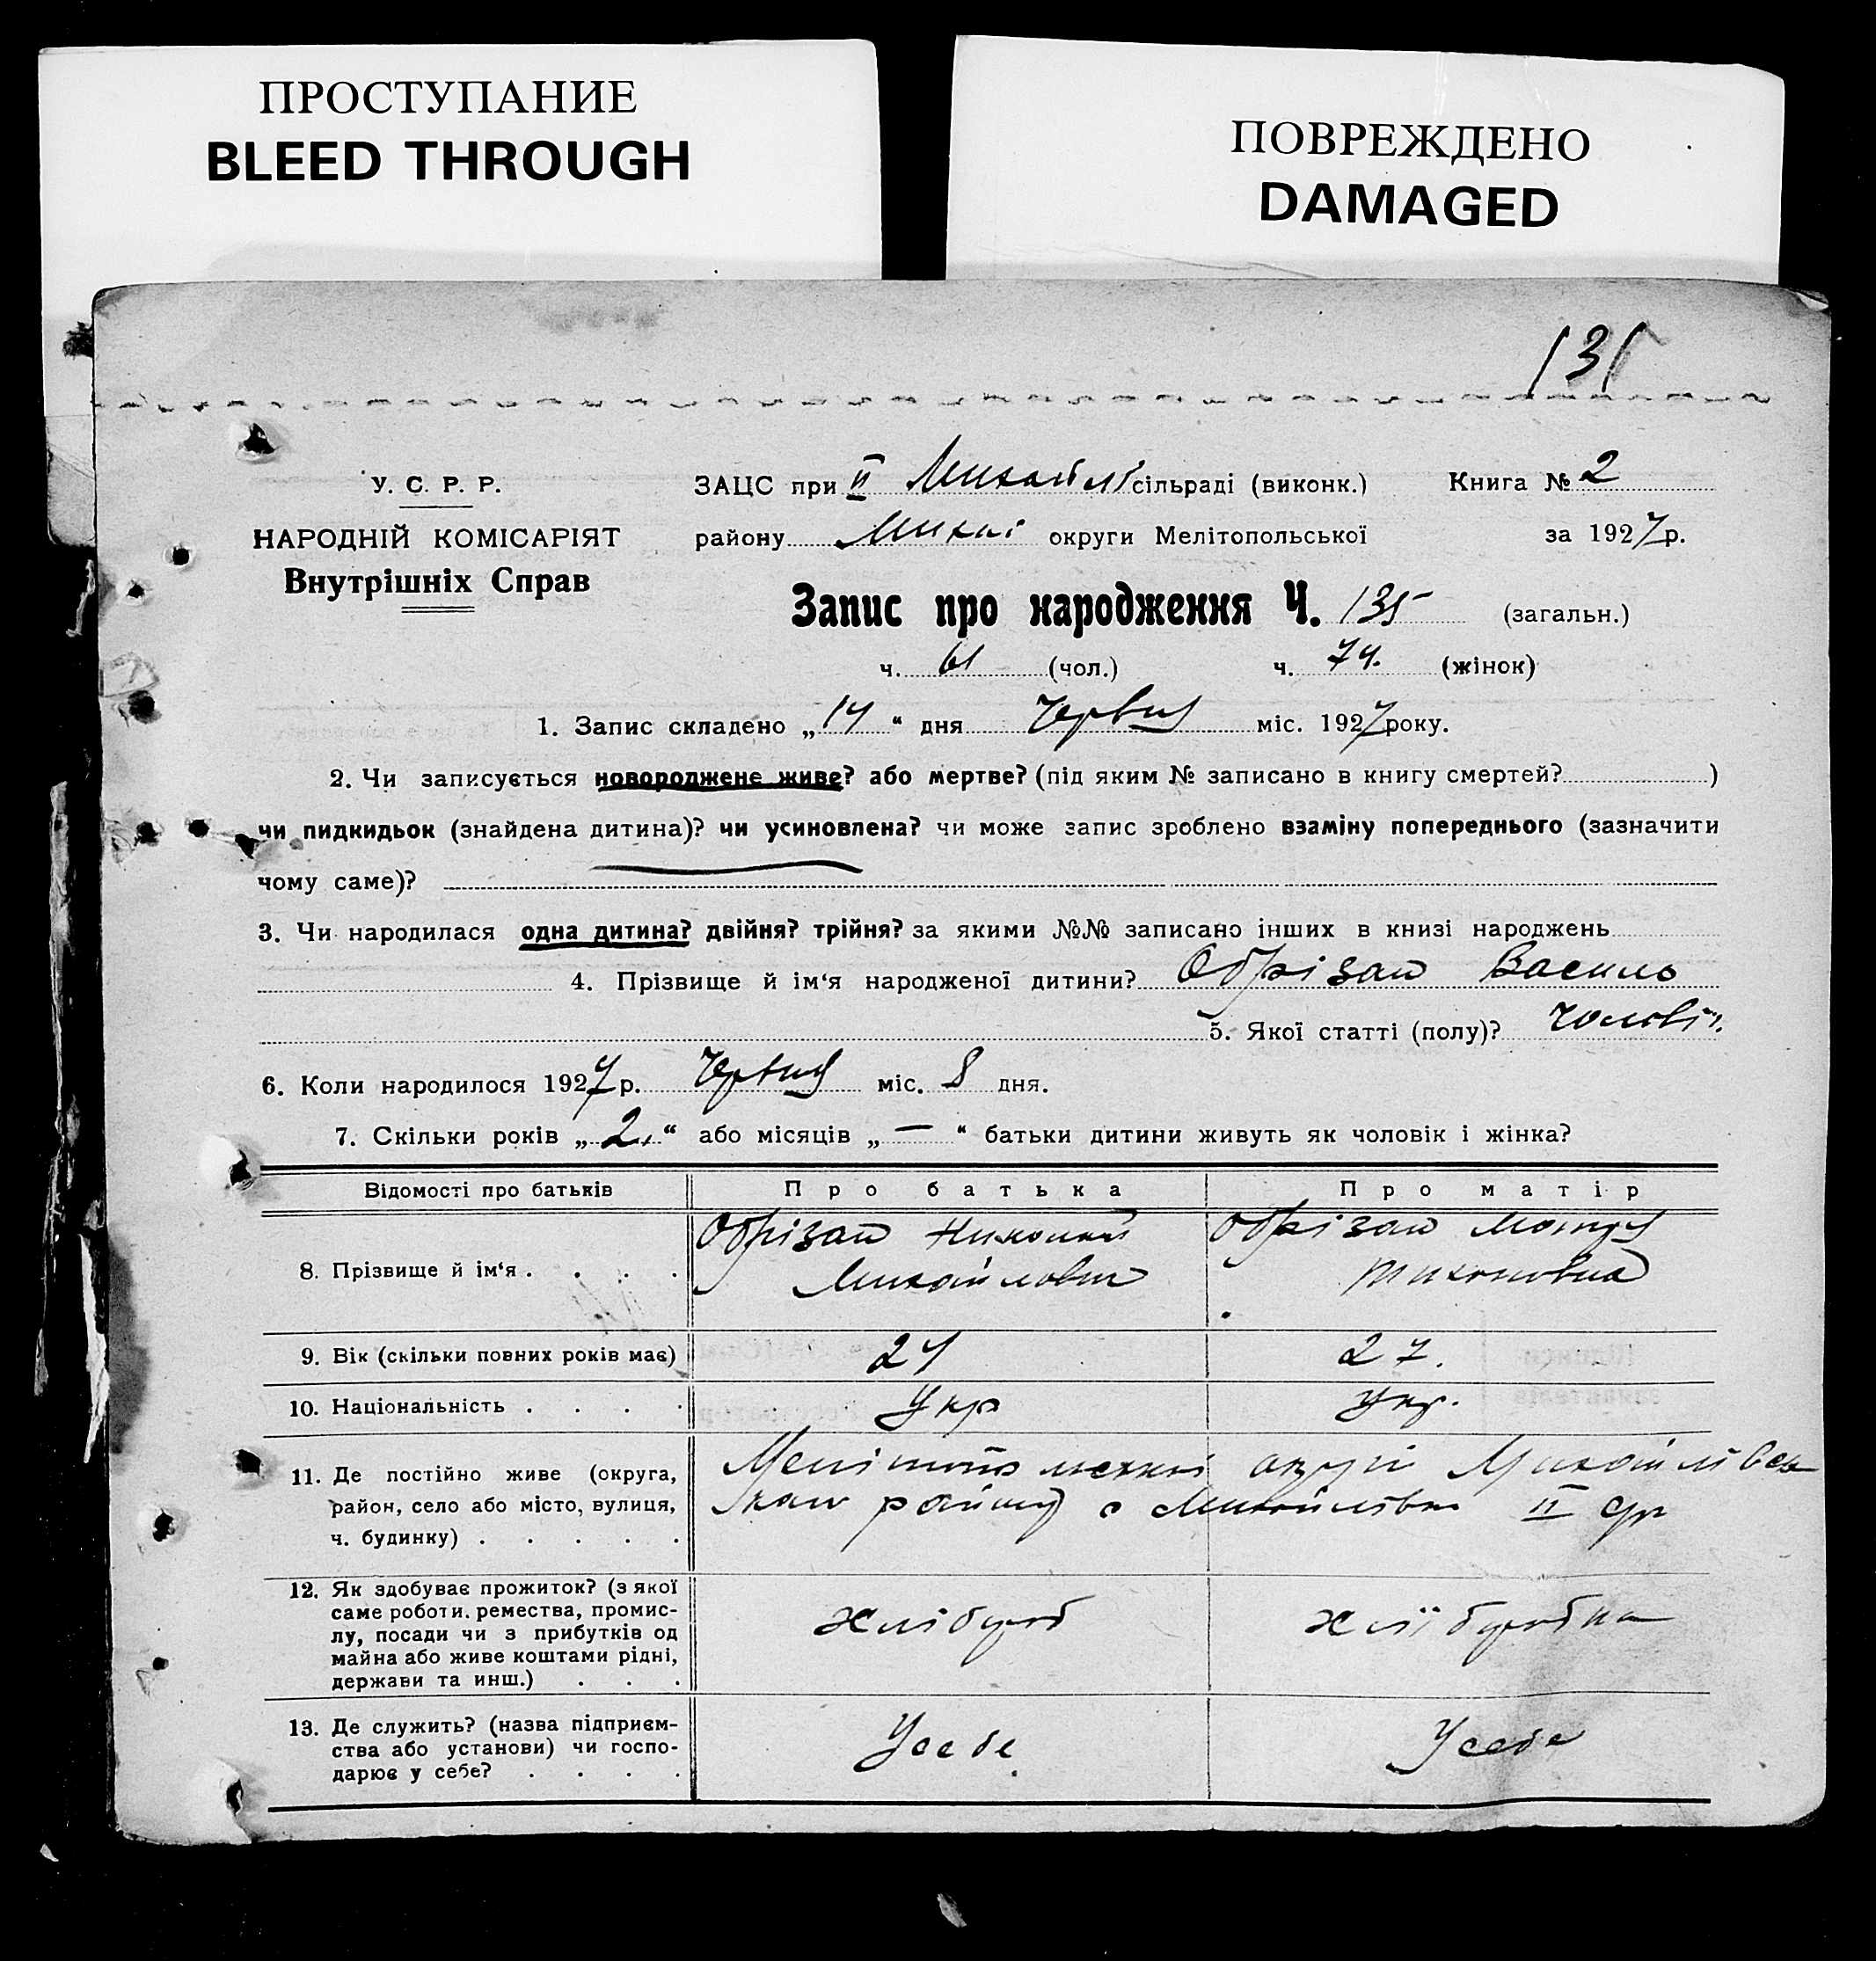 ПРОСТУПАНИЕ
BLEED THROUGH
ПОВРЕЖДЕНО
DAMAGED
У. С. Р. Р.
НАРОДНІЙ КОМІСАРІЯТ
Внутрішніх Справ
ЗАЦС при II Михайлі сільраді (виконк.) Книга № 2
району Михай округи Мелітопольської за 1927 р.
Запис про народження Ч. 135 (загальн.)
ч. 61 (чол.) ч. 74. (жінок)
1. Запис складено „14“ дня Червня міс. 1927 року.
2. Чи записується новороджене живе? або мертве? (під яким № записано в книгу смертей? )
чи пидкидьок (знайдена дитина)? чи усиновлена? чи може запис зроблено взаміну попереднього (зазначити
чому саме)?
3. Чи народилася одна дитина? двійня? трійня? за якими №№ записано інших в книзі народжень
4. Прізвище й ім‘я народженої дитини? Обрізан Василь
5. Якої статті (полу)? Чоловіч.
6. Коли народилося 1927 р. Червня міс. 8 дня.
7. Скільки років „2“ або місяців „—“ батьки дитини живуть як чоловік і жінка?
Відомості про батьків Про батька Про матір
8. Прізвище й ім‘я . . . . Обрізан Николай Михайлович
Обрізан Мотря Тихоновна
9. Вік (скільки повних років має) 27.
10. Національність . . . . Укр Укр.
11. Де постійно живе (округа,
район, село або місто, вулиця,
ч. будинку) . . . . .
Мелітопольскої округи Михайлівсь
кого району с Михайлівка II
12. Як здобуває прожиток? (з якої
саме роботи, ремества, промис-
лу, посади чи з прибутків од
майна або живе коштами рідні,
держави та инш.) . . .
Хлібороб Хліборобка
13. Де служить? (назва підприєм-
ства або установи) чи госпо-
дарює у себе? . . . .
У себе. У себе